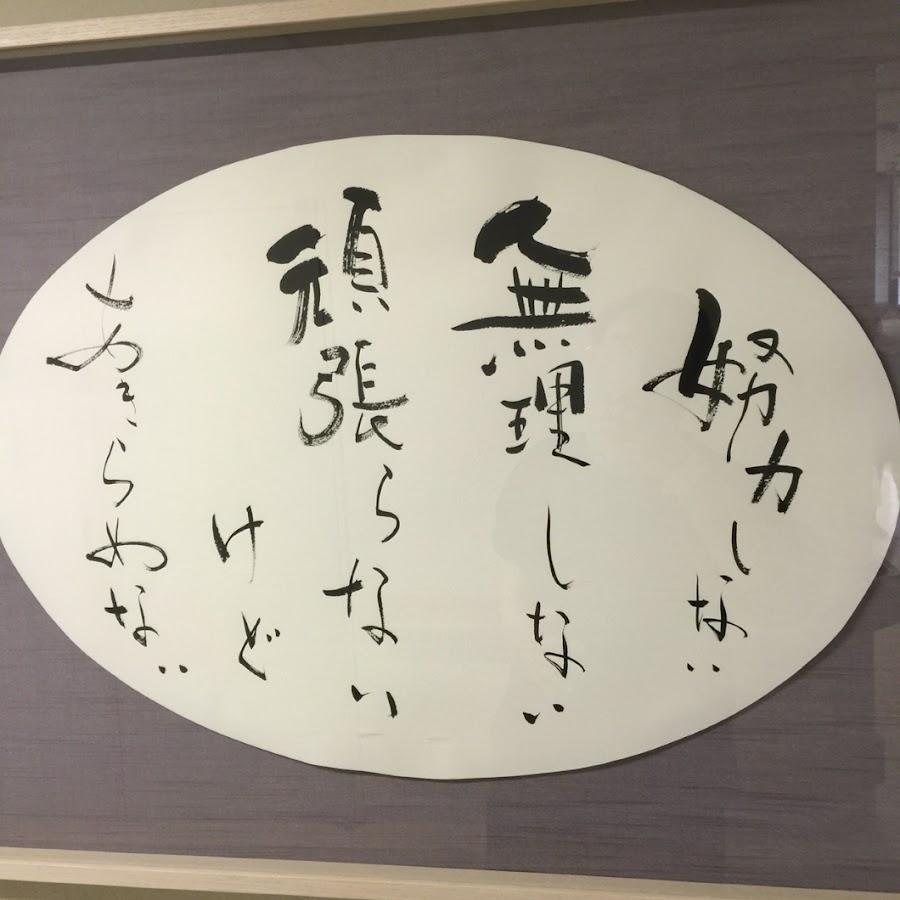 努力しない
無理しない
頑張らない
けど
あきらめない